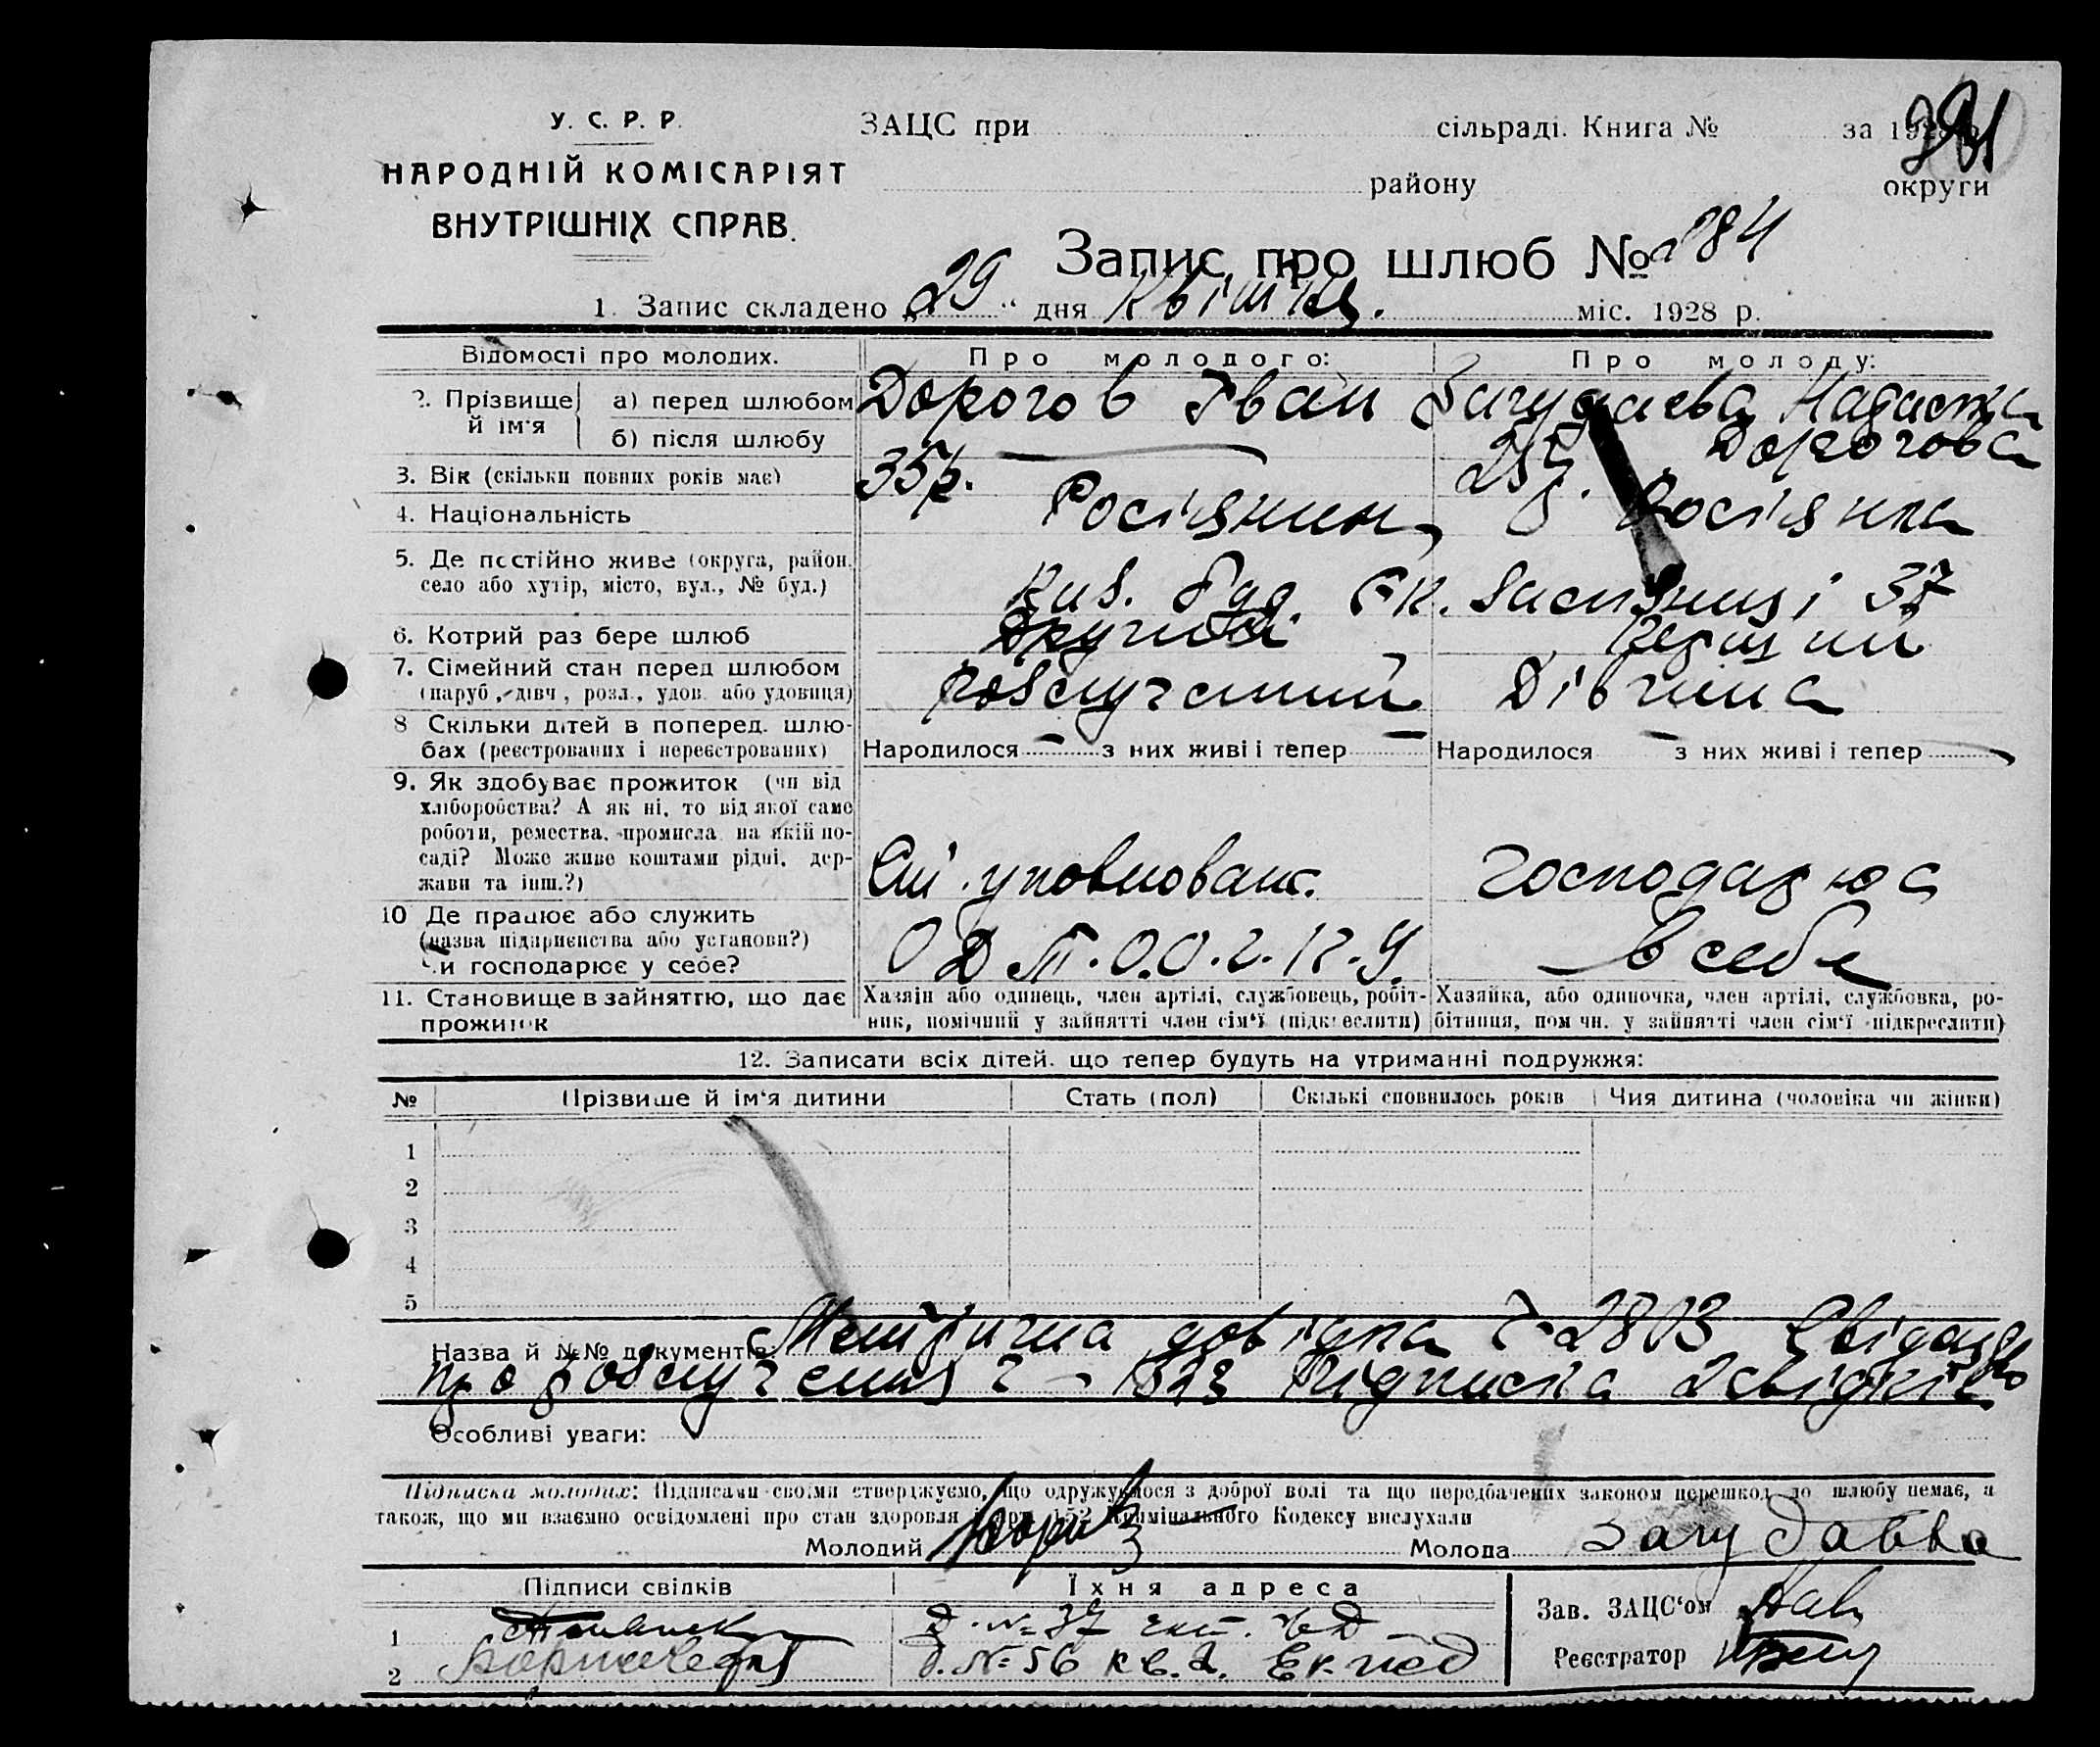 У. С. Р. Р.
НАРОДНІЙ КОМІСАРІЯТ
ВНУТРІШНІХ СПРАВ.
ЗАЦС при сільраді. Книга № за 1928
району округи
Запис про шлюб № 284
1. Запис складено „29“ дня Квітня. міс. 1928 р.
Відомості про молодих. Про молодого: Про молоду:
2. Прізвище й ім'я а) перед шлюбом Дорогов Іван Надежда
б) після шлюбу Дорогова
3. Вік (скільки повних років має) 35 р. 25 р.
4. Національність Росіянин Росіянка
5. Де постійно живе (округа, район,
село або хутір, місто, вул., № буд.) буд. 37
6. Котрий раз бере шлюб Другий Перший
7. Сімейний стан перед шлюбом
(паруб., дівч., розл., удов. або удовиця) розлучений Дівчина
8 Скільки дітей в поперед. шлю-
бах (реєстрованих і нереєстрованих) Народилося — з них живі і тепер — Народилося — з них живі і тепер —
9. Як здобуває прожиток (чи від
хліборобства? А як ні, то від якої саме
роботи, ремества, промисла на якій по-
саді? Може живе коштами рідні, дер-
жави та інш.?) уповноваж. господарює
10 Де працює або служить
(назва підприємства або установи?)
Чи господарює у себе? в себе
11. Становище в зайняттю, що дає
прожиток
Хазяїн або одинець, член артілі, службовець, робіт-
ник, помічний у зайнятті член сім'ї (підкреслити)
Хазяйка, або одиночка, член артілі, службовка, ро-
бітниця, пом чн. у зайнятті член сім'ї підкреслити)
12. Записати всіх дітей. що тепер будуть на утриманні подружжя:
№ Прізвище й ім'я дитини Стать (пол) Скількі сповнилось років Чия дитина (чоловіка чи жінки)
1
2
3
4
5
Назва й №№ документів: Метрична довідка ч-2803 Свідоцтво
про розлучення ч - 1323 Підписка 2 свідків
Особливі уваги:
Підписка молодих: Підписами своїми стверджуємо, що одружуємося з доброї волі та що передбачених законом перешкод до шлюбу немає, а
також, що ми взаємно освідомлені про стан здоровля і арт. 152 Кримінального Кодексу вислухали
Молодий Молода
Підписи свідків Їхня адреса
Зав. ЗАЦС'ом
1 Д. № 37
2 д. № 56 кв. 2.
Реєстратор